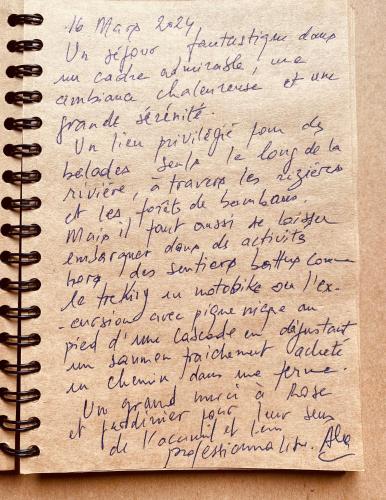 16 Mars 2024,
Un séjour fantastique dans
un cadre admirable, une
ambiance chaleureuse et une
grande sérénité.
Un lieu privilégié pour des
balades seuls le long de la
rivière, à travers les rizières
et les forêts de bambous.
Mais il faut aussi se laisser
embarquer dans ds activités
hors des sentiers battus comme
le treking en motobike ou l'ex-
-cursion avec pique nique au
pied d'une cascade en dégustant
un saumon fraichement acheté
en chemin dans une ferme.
Un grand merci à Rose
et pour leur sens
de l'accueil et leur
professionnalisme.